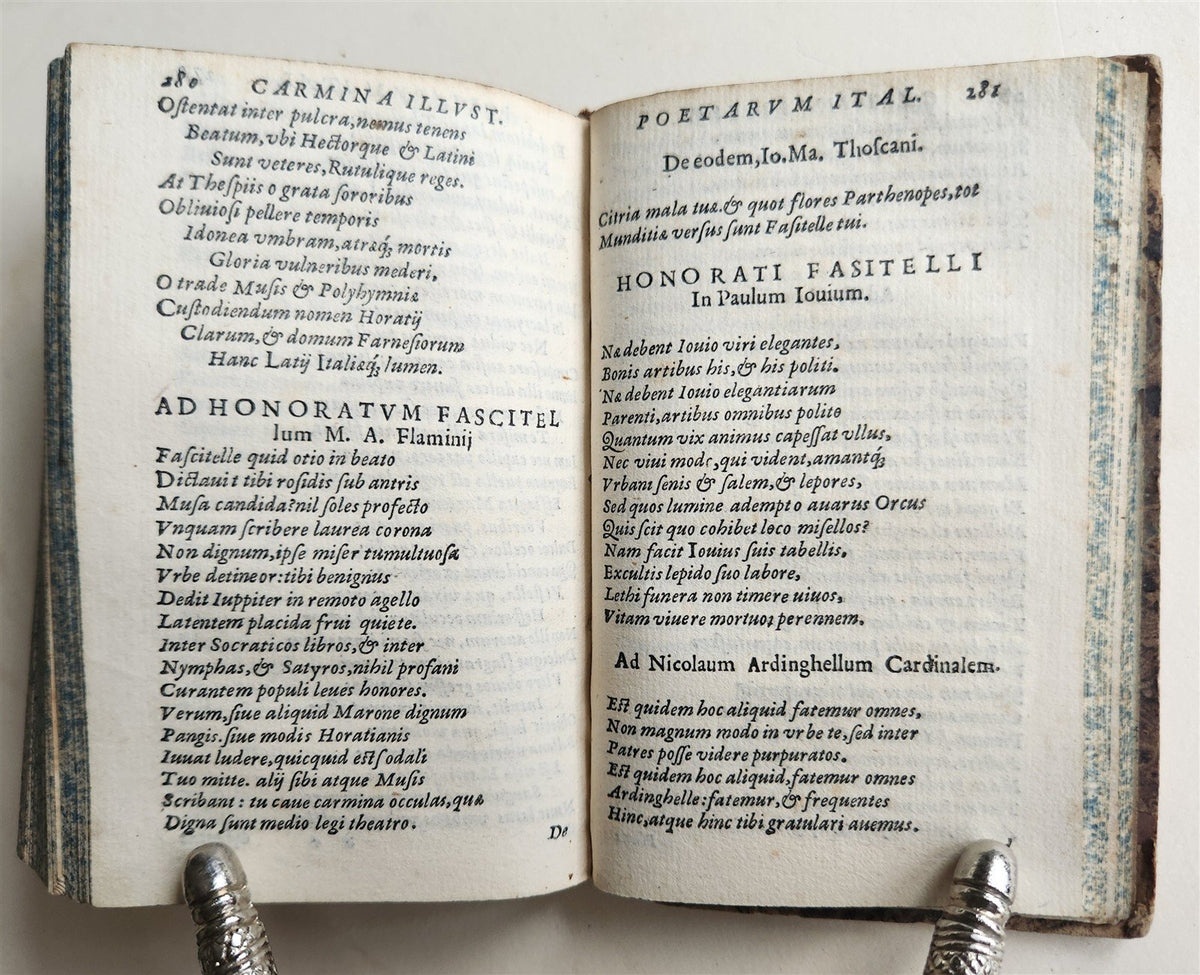 280 CARMINA ILLVST.
Oſtentat inter pulcra,nemus tenens
Beatum,vbi Hectorque & Latini
Sunt veteres,Rutulique reges.
At Theſpiis o grata ſororibus
Obliuioſi pellere temporis
Idonea vmbram,atræq́; mortis
Gloria vulneribus mederi.
O trade Muſis & Polyhymniæ
Cuſtodiendum nomen Horatij
Clarum,& domum Farneſiorum
Hanc Latij Italiæq́; lumen.
AD HONORATVM FASCITEL
lum M. A. Flaminij
Faſcitelle quid otio in beato
Dictauit tibi roſidis ſub antris
Muſa candida?nil ſoles profecto
Vnquam ſcribere laurea corona
Non dignum,ipſe miſer tumultuoſa
Vrbe detineor:tibi benignus
Dedit Iuppiter in remoto agello
Latentem placida frui quiete.
Inter Socraticos libros,& inter
Nymphas,& Satyros,nihil profani
Curantem populi leues honores.
Verum,ſiue aliquid Marone dignum
Pangis.ſiue modis Horatianis
Iuuat ludere,quicquid eſt ſodali
Tuo mitte. alij ſibi atque Muſis
Scribant : tu caue carmina occulas,quæ
Digna ſunt medio legi theatro.
De
POETARVM ITAL. 281
De eodem,Io.Ma. Thoſcani.
Citria mala tuæ.& quot flores Parthenopes,tot
Munditiæ verſus ſunt Faſitelle tui.
HONORATI FASITELLI
In Paulum Iouium.
Næ debent Iouio viri elegantes,
Bonis artibus his,& his politi.
Næ debent Iouio elegantiarum
Parenti,artibus omnibus polito
Quantum vix animus capeſſat vllus,
Nec viui modo,qui vident,amantq́;
Vrbani ſenis & ſalem,& lepores,
Sed quos lumine adempto auarus Orcus
Quis ſcit quo cohibet loco miſellos?
Nam facit Iouius ſuis tabellis.
Excultis lepido ſuo labore,
Lethi funera non timere uiuos,
Vitam viuere mortuos perennem.
Ad Nicolaum Ardinghellum Cardinalem.
Eſt quidem hoc aliquid fatemur omnes,
Non magnum modo in vrbe te,ſed inter
Patres poſſe videre purpuratos.
Eſt quidem hoc aliquid,fatemur omnes
Ardinghelle:fatemur,& frequentes
Hinc,atque hinc tibi gratulari auemus.